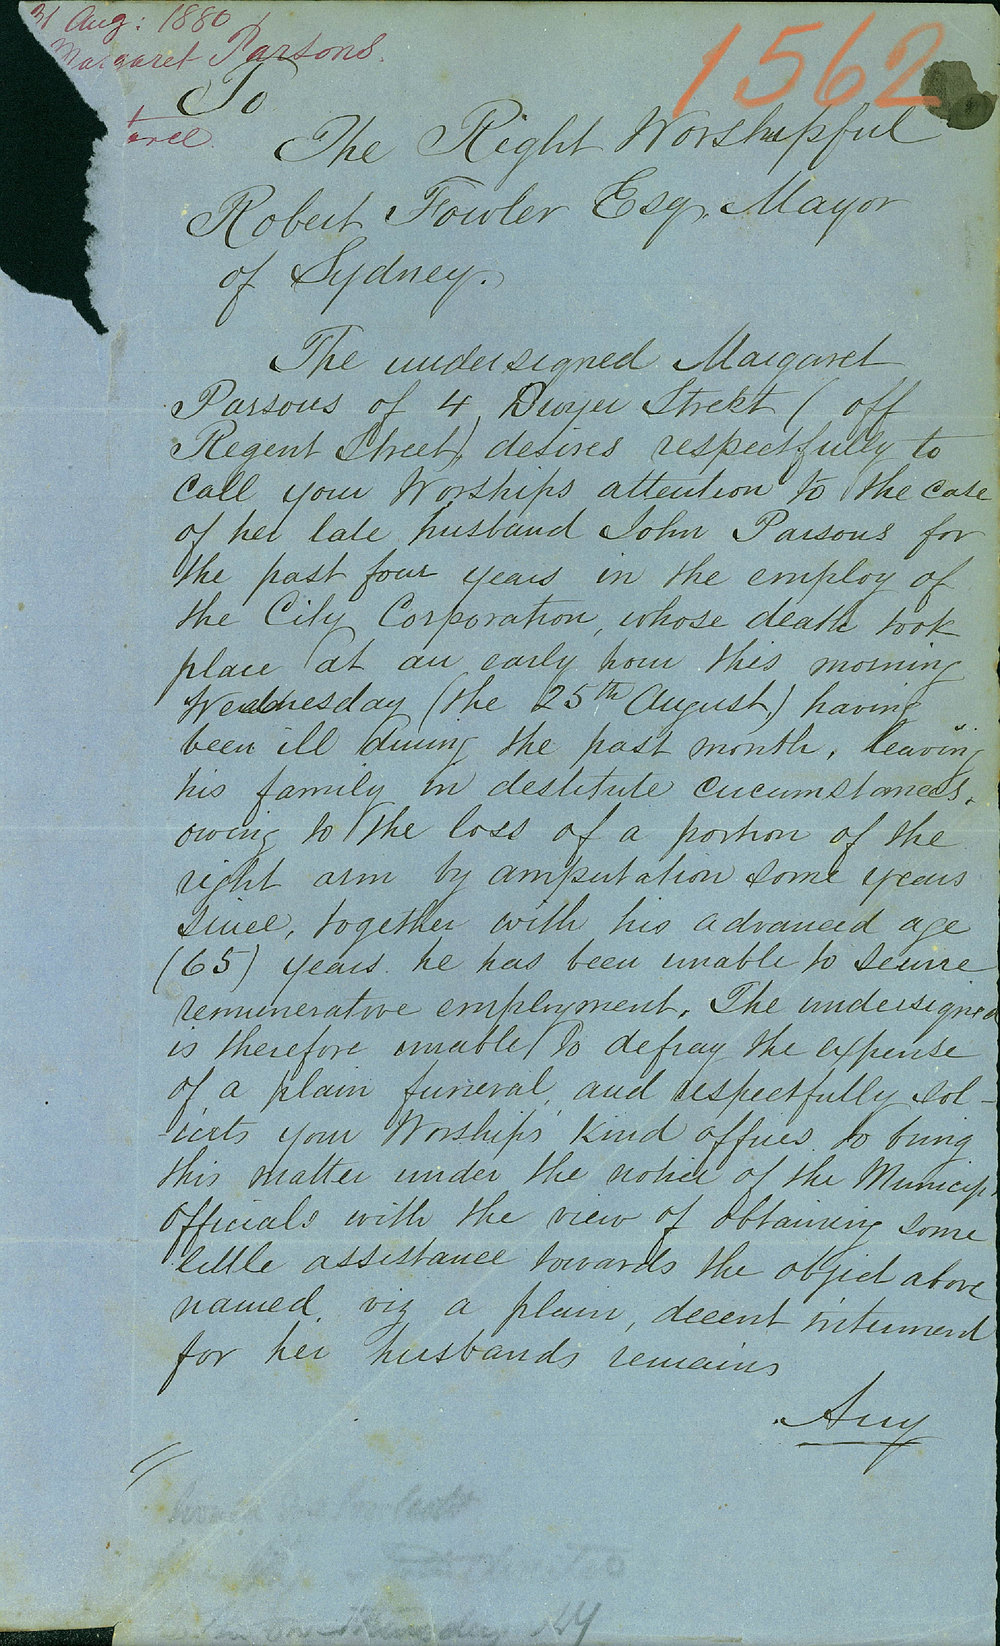 31 Aug: 1880
Margaret Parsons.
1562
To
The Right Worshipful
Robert Fowler Esq. Mayor
of Sydney.
The undersigned Margaret
Parsons of 4 Dwyer Street ( off
Regent Street) desires respectfully to
call your Worships attention to the case
of her late husband John Parsons for
the past four years in the employ of
the City Corporation, whose death took
place at an early hour this morning
Wednesday (the 25th August,) having
been ill during the past month, leaving
his family in destitute circumstances,
owing to the loss of a portion of the
right arm by amputation some years
since, together with his advanced age
(65) years he has been unable to secure
remunerative employment. The undersigned
is therefore unable to defray the expense
of a plain funeral, and respectfully sol-
-icits your Worships' kind offices to bring
this matter under the notice of the Municip
Officials with the view of obtaining some
little assistance towards the object above
named, viz a plain, decent interment
for her husbands remains
Any
on Thursday